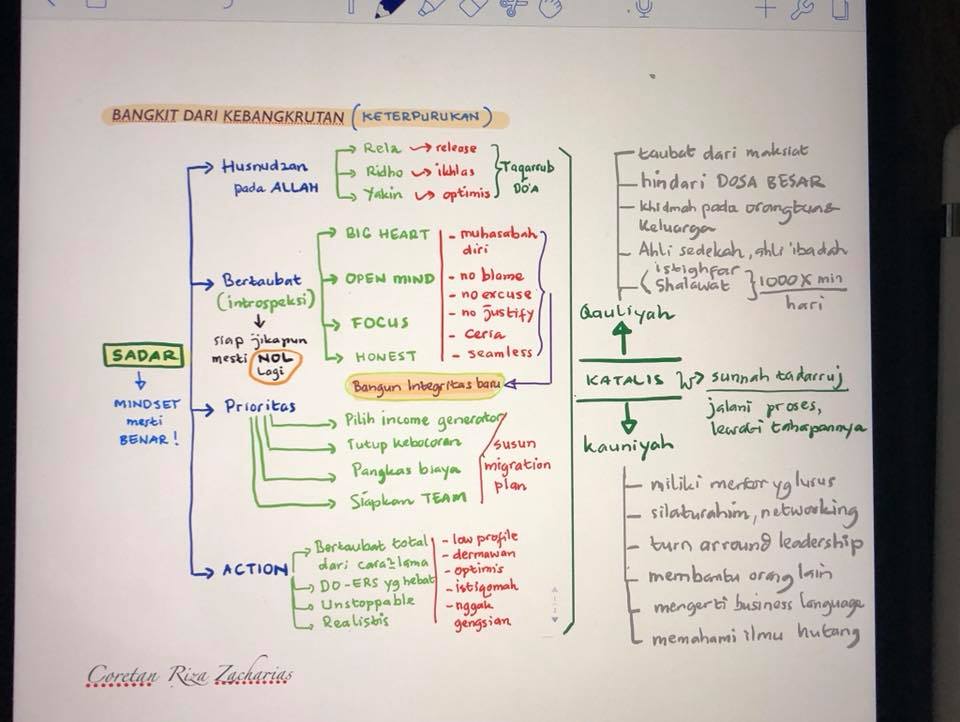 BANGKIT DARI KEBANGKRUTAN (KETERPURUKAN)
SADAR
MINDSET
mesti
BENAR!
Husnudzan
pada ALLAH
Rela → release
Ridho → ikhlas
Yakin → optimis
Taqarrub
DO'A
Bertaubat
(introspeksi)
siap jikapun
mesti NOL
Lagi
BIG HEART
OPEN MIND
FOCUS
HONEST
- muhasabah
diri
- no blame
- no excuse
- no justify
- ceria
- seamless
Bangun Integritas baru
Prioritas
Pilih income generator
Tutup kebocoran
Pangkas biaya
Siapkan TEAM
susun
migration
plan
ACTION
Bertaubat total
dari cara2 lama
DO-ERS yg hebat
Unstoppable
Realistis
- low profile
- dermawan
- optimis
- istiqomah
- nggak
gengsian
taubat dari maksiat
hindari DOSA BESAR
khidmah pada orangtua
keluarga
Ahli sedekah, ahli 'ibadah
istighfar
shalawat
1000X min
hari
Qauliyah
KATALIS → sunnah tadarruj
jalani proses,
lewati tahapannya
kauniyah
miliki mentor yg lurus
silaturahim, networking
turn arround leadership
membantu orang lain
mengerti business language
memahami ilmu hutang
Coretan Riza Zacharias